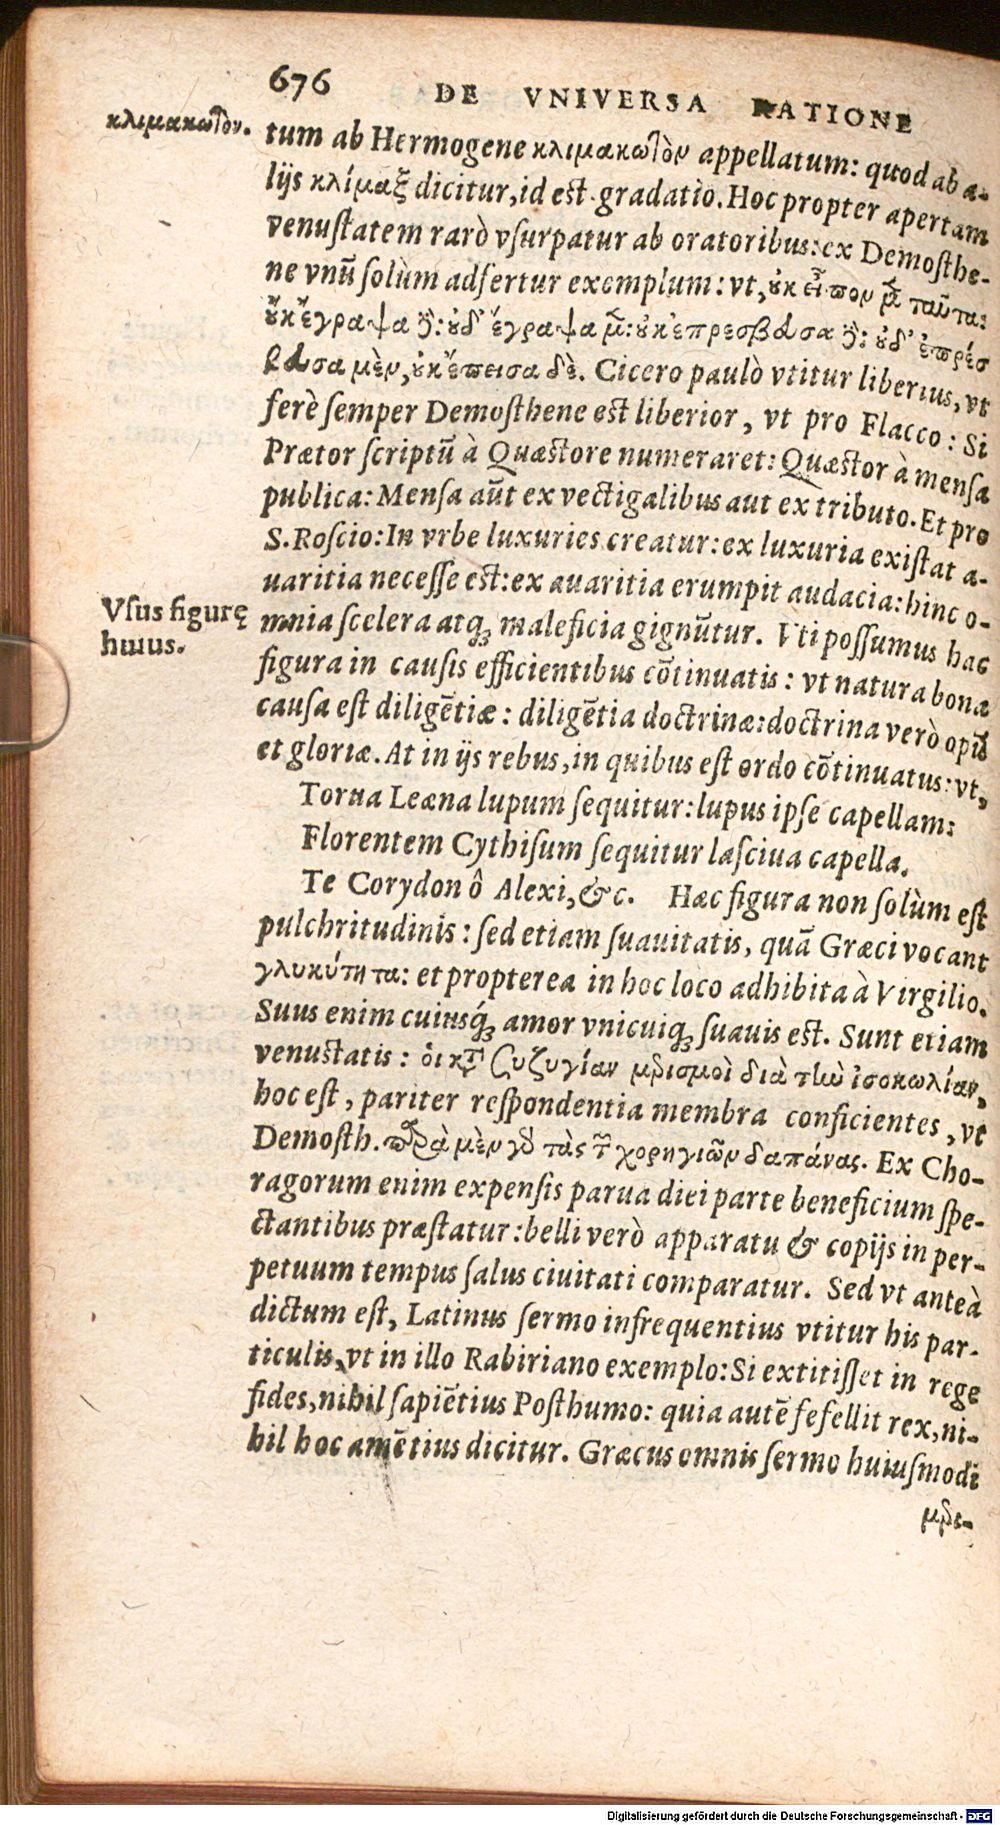 676 DE VNIVERSA RATIONE
κλιμακωτὸν.
tum ab Hermogene κλιμακωτὸν appellatum: quod ab a-
lijs κλίμαξ dicitur, id est gradatio. Hoc propter apertam
venustatem rarò vsurpatur ab oratoribus: ex Demosthe-
ne vnũ solùm adfertur exemplum: vt, οὐκ εἶπον μὲν ταῦτα:
οὐκ ἔγραψα δὲ: οὐδ' ἔγραψα μὲν: οὐκ ἐπρεσβευσα δὲ: οὐδ' ἐπρέσ
βευσα μὲν, οὐκ ἔπεισα δὲ. Cicero paulò vtitur liberius, vt
ferè semper Demosthene est liberior, vt pro Flacco: Si
Prætor scriptũ à Quæstore numeraret: Quæstor à mensa
publica: Mensa aũt ex vectigalibus aut ex tributo. Et pro
S. Roscio: In vrbe luxuries creatur: ex luxuria existat a-
uaritia necesse est: ex auaritia erumpit audacia: hinc o-
Vsus figurę
huius.
mnia scelera atq; maleficia gignũtur. Vti possumus hac
figura in causis efficientibus cõtinuatis: vt natura bona
causa est diligẽtiæ: diligẽtia doctrinæ: doctrina verò opũ
et gloriæ. At in ijs rebus, in quibus est ordo cõtinuatus: vt,
Torua Leæna lupum sequitur: lupus ipse capellam:
Florentem Cythisum sequitur lasciua capella.
Te Corydon ô Alexi, &c. Hæc figura non solùm est
pulchritudinis: sed etiam suauitatis, quã Græci vocant
γλυκύτητα: et propterea in hoc loco adhibita à Virgilio.
Suus enim cuiusq́; amor vnicuiq; suauis est. Sunt etiam
venustatis: οἱ κατὰ συζυγίαν μερισμοὶ διὰ τὴν ἰσοκωλίαν,
hoc est, pariter respondentia membra conficientes, vt
Demosth. παρὰ μὲν γὰρ τὰς τῶν χορηγιῶν δαπάνας. Ex Cho-
ragorum enim expensis parua diei parte beneficium spe-
ctantibus præstatur: belli verò apparatu & copijs in per-
petuum tempus salus ciuitati comparatur. Sed vt anteà
dictum est, Latinus sermo infrequentius vtitur his par-
ticulis, vt in illo Rabiriano exemplo: Si extitisset in rege
fides, nihil sapiẽtius Posthumo: quia autẽ fefellit rex, ni-
hil hoc amẽtius dicitur. Græcus omnis sermo huiusmodi
μερι-
Digitalisierung gefördert durch die Deutsche Forschungsgemeinschaft - DFG